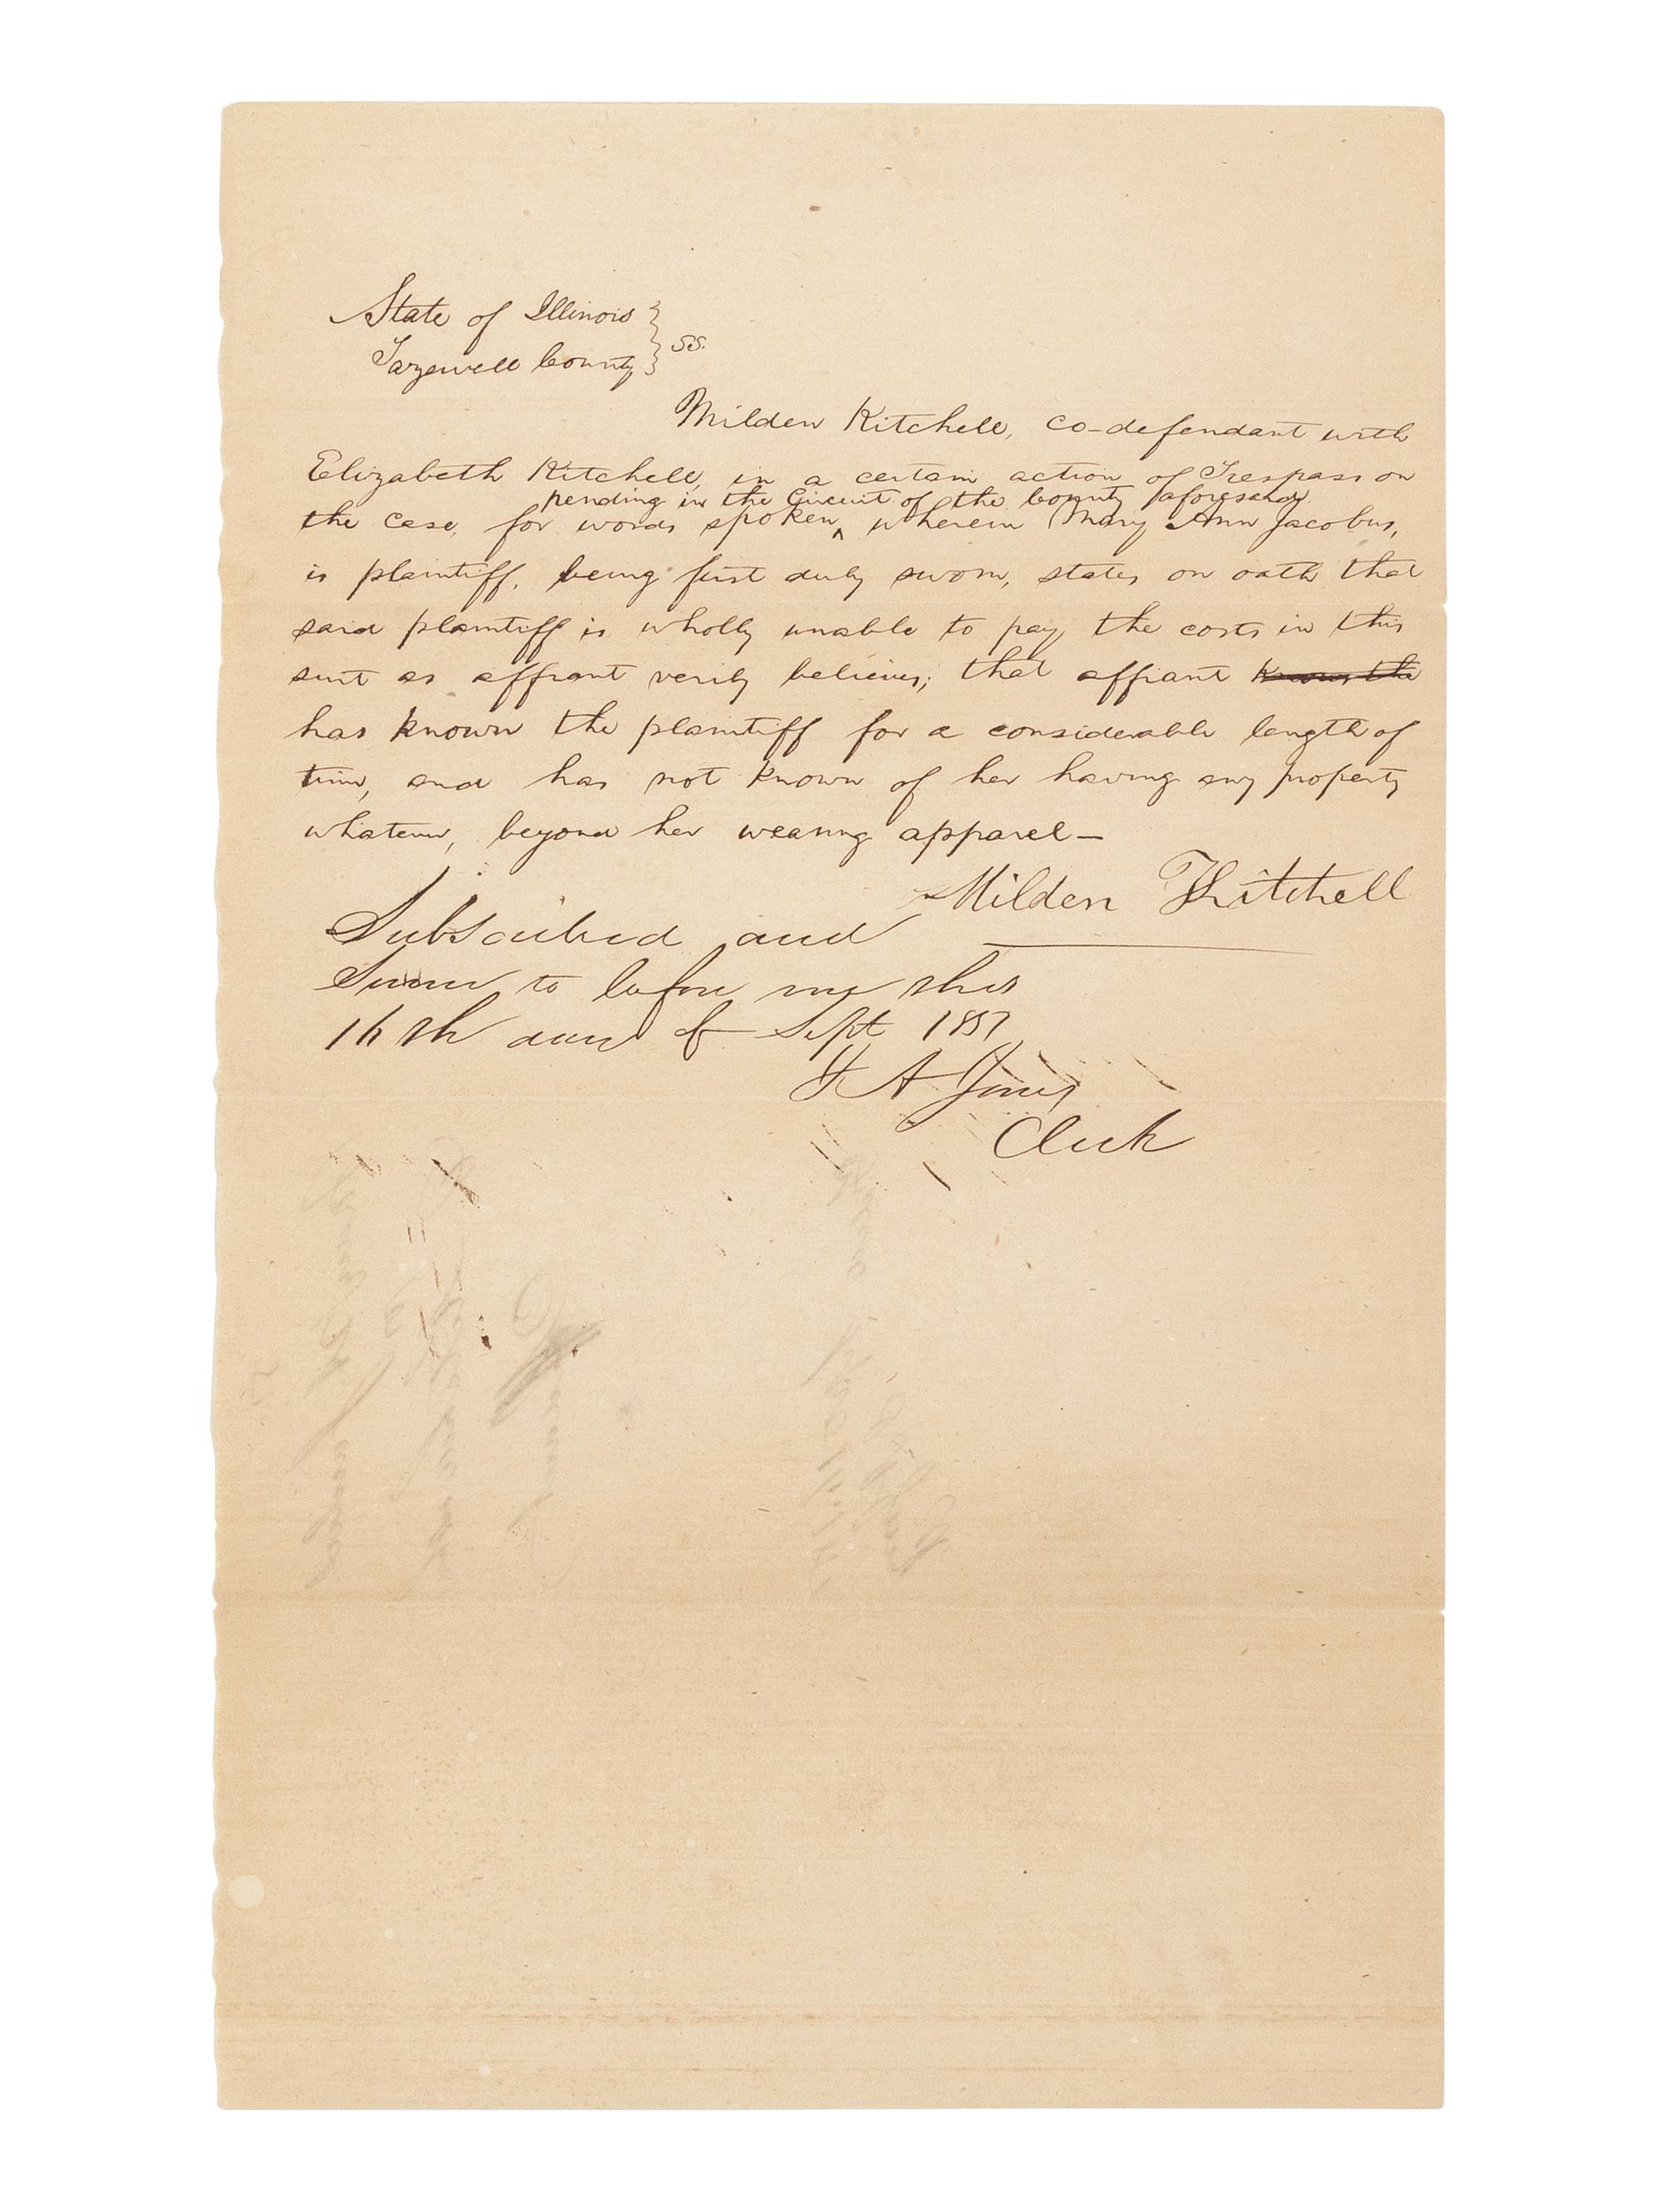 State of Illinois } ss.
Tazewell County }
Milden Kitchell, co-defendant with
Elizabeth Kitchell, in a certain action of Trespass on
pending in the Circuit of the County aforesaid
the case, for words spoken, ^ wherein Mary Ann Jacobus,
is plaintiff, being first duly sworn, states on oath that
said plaintiff is wholly unable to pay the costs in this
suit as affiant verily believes; that affiant knows the
has known the plaintiff for a considerable length of
time, and has not known of her having any property
whatever, beyond her wearing apparel—
Milden Kitchell
Subscribed and
Sworn to before me this
16th day of Sept 1857
A Jones
Clerk